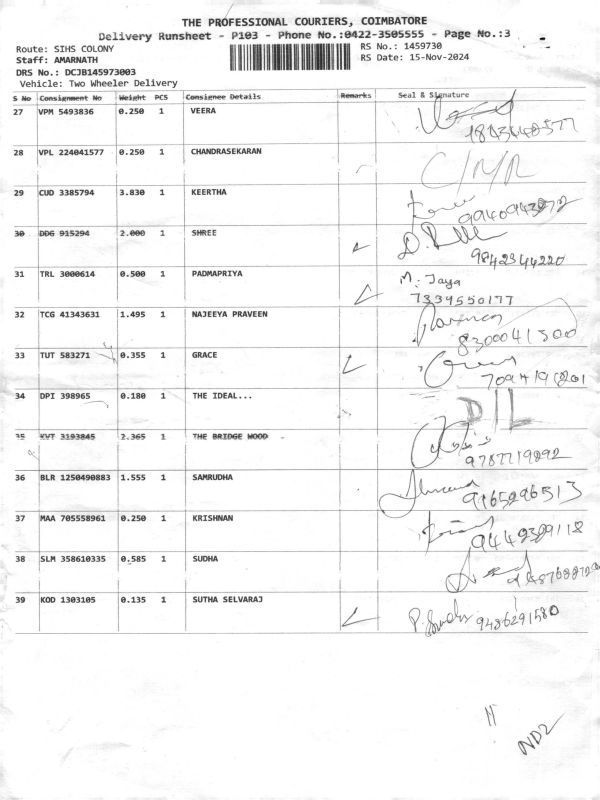 THE PROFESSIONAL COURIERS, COIMBATORE
Delivery Runsheet - P103 - Phone No.:0422-3505555 - Page No.:3
Route: SIHS COLONY
RS No.: 1459730
Staff: AMARNATH
RS Date: 15-Nov-2024
DRS No.: DCJB145973003
Vehicle: Two Wheeler Delivery
S No Consignment No Weight PCS Consignee Details Remarks Seal & Signature
27 VPM 5493836 0.250 1 VEERA
28 VPL 224041577 0.250 1 CHANDRASEKARAN
29 CUD 3385794 3.830 1 KEERTHA
30 DDG 915294 2.000 1 SHREE
9842344220
31 TRL 3000614 0.500 1 PADMAPRIYA M. Jaya
7339550177
32 TCG 41343631 1.495 1 NAJEEYA PRAVEEN
8300041500
33 TUT 583271 0.355 1 GRACE
34 DPI 398965 0.180 1 THE IDEAL...
35 KVT 3193845 2.365 1 THE BRIDGE WOOD
9787719892
36 BLR 1250490883 1.555 1 SAMRUDHA
37 MAA 705558961 0.250 1 KRISHNAN
38 SLM 358610335 0.585 1 SUDHA
39 KOD 1303105 0.135 1 SUTHA SELVARAJ
9486291580
ND2